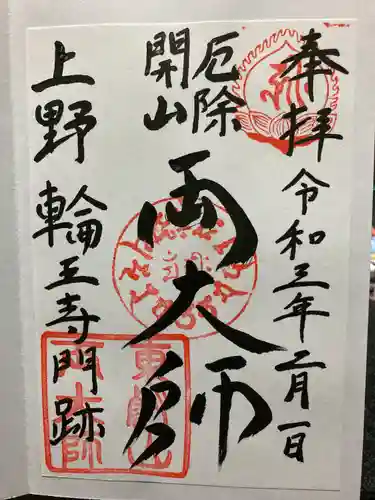 奉拝
令和三年二月一日
厄除
開山
両大師
上野輪王寺門跡